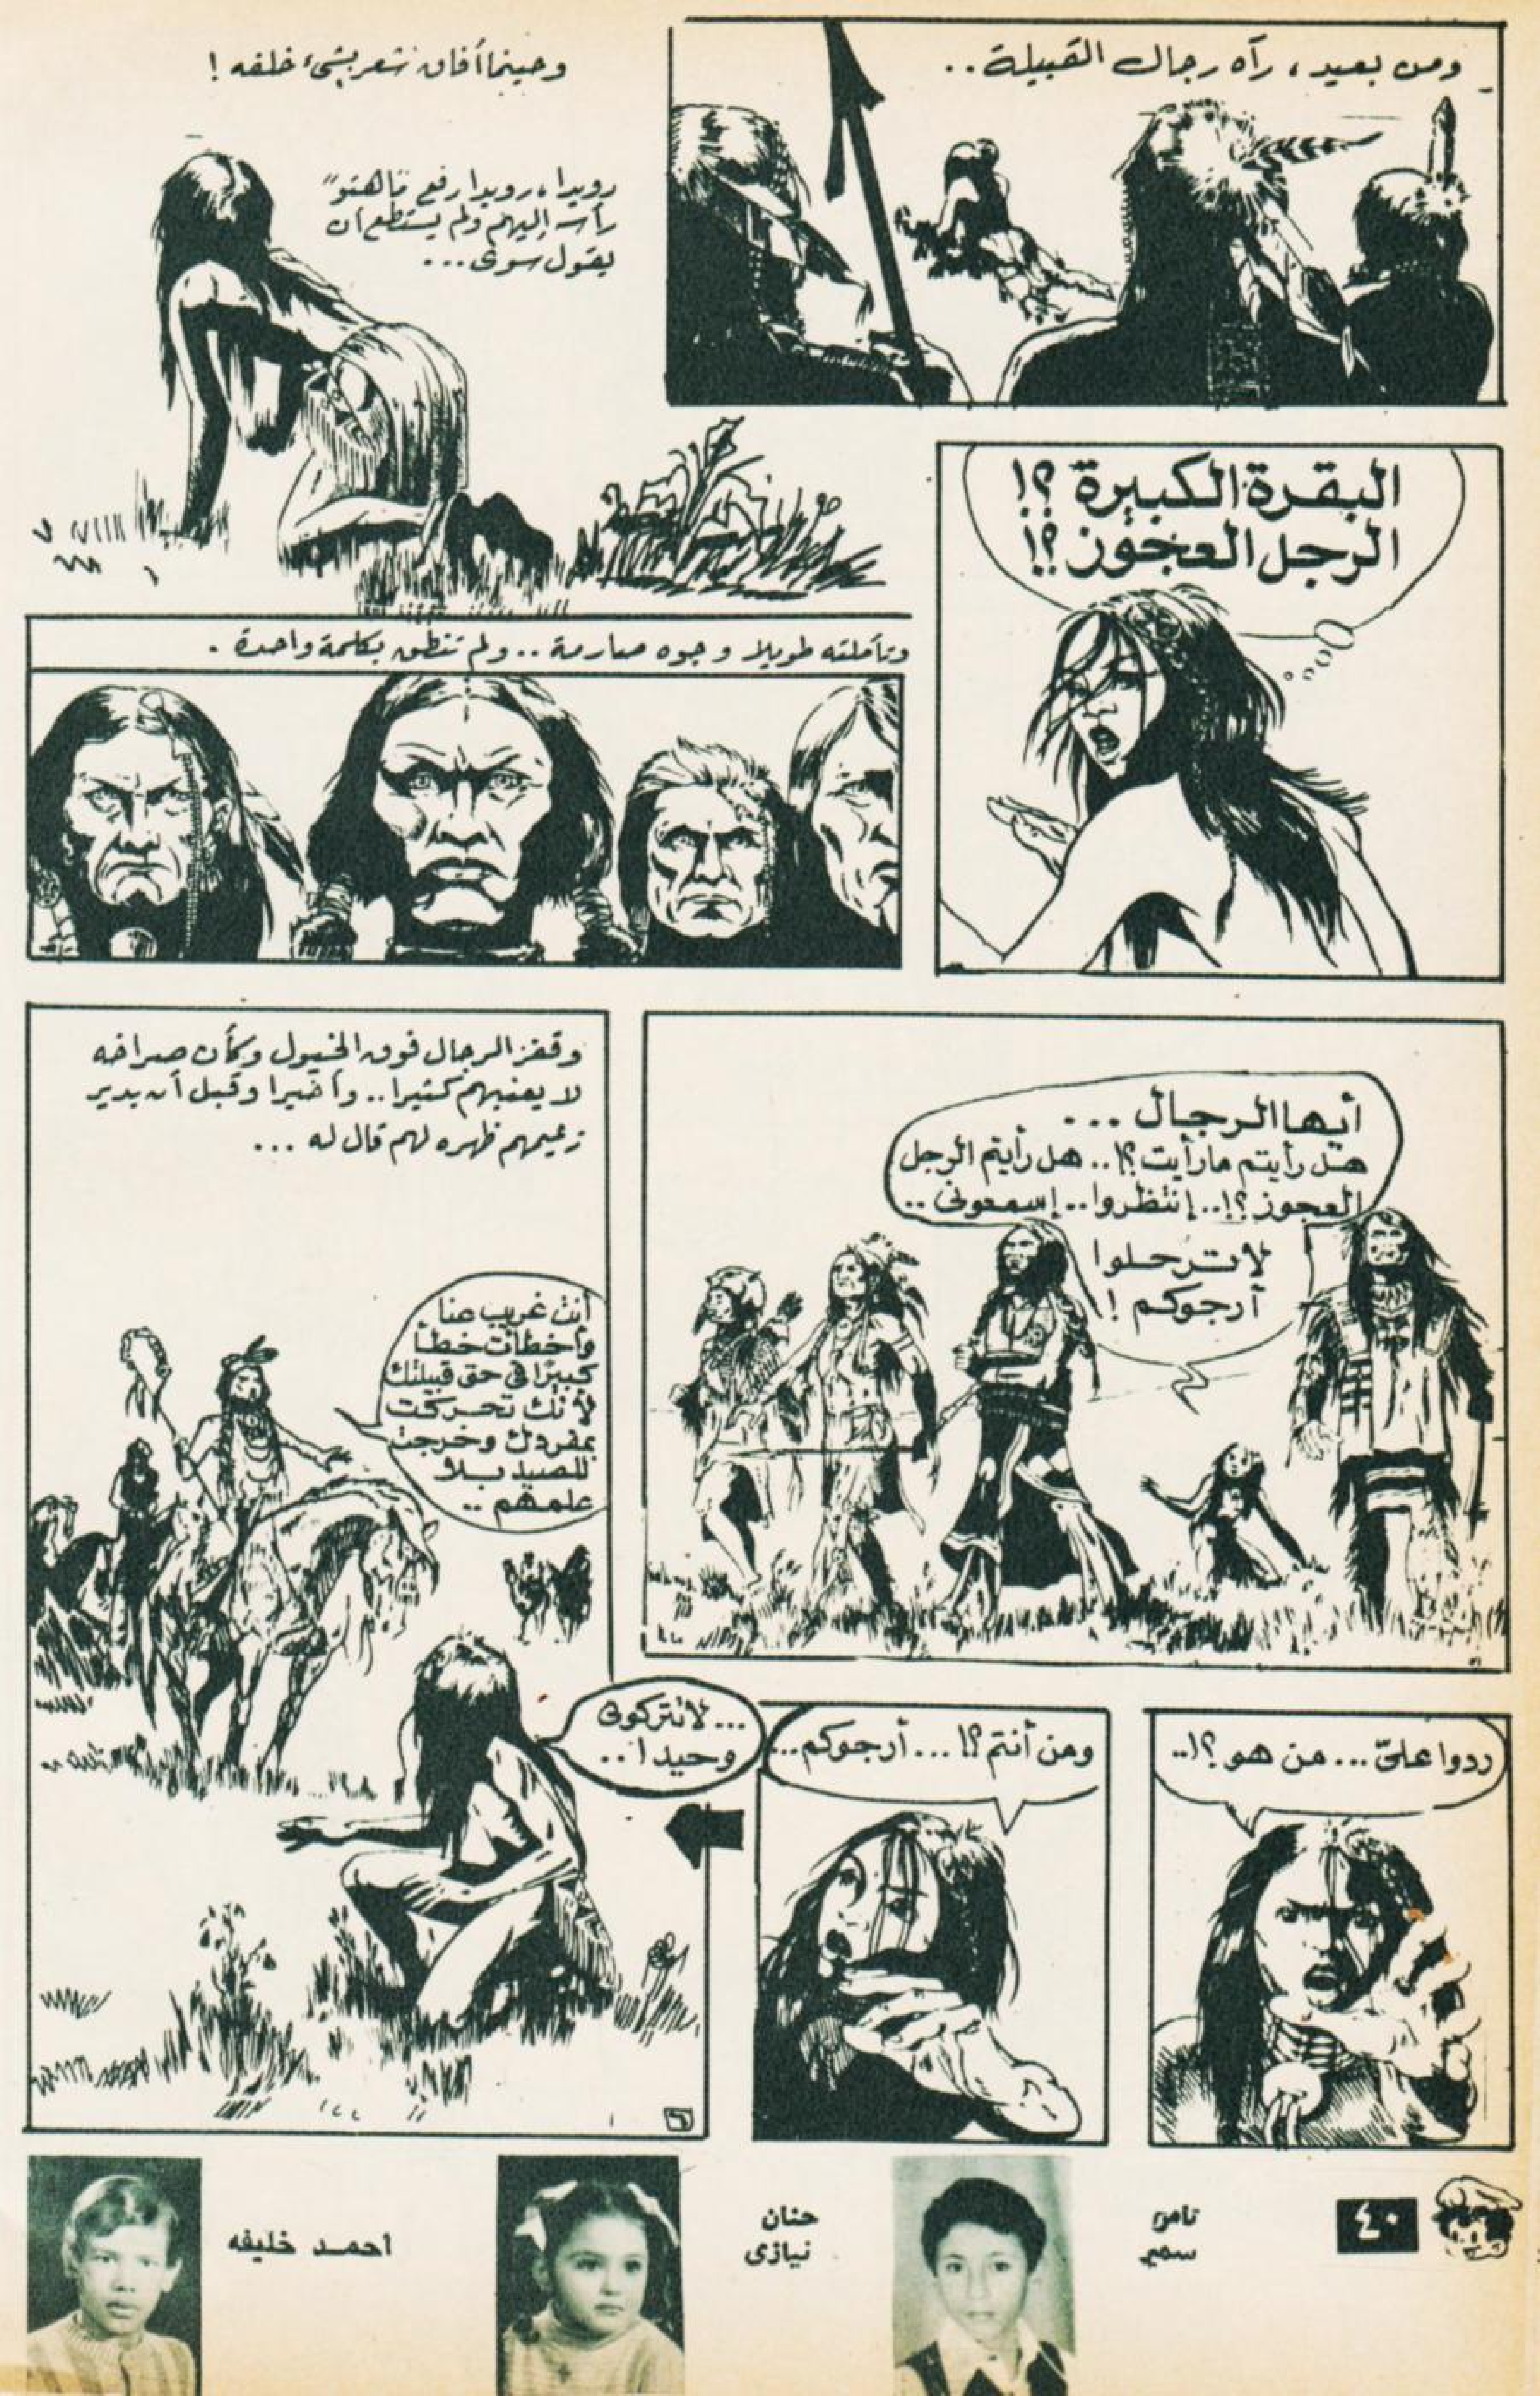 ومن بعيد، رآه رجال القبيلة..
وحينما أفاق شعر بشىء خلفه !
رويدا، رويدا رفع "ماهتو"
رأسه إليهم ولم يستطع أن
يقول سوى...
البقرة الكبيرة ؟!
الرجل العجوز ؟!
وتأملته طويلا وجوه صارمة .. ولم تنطق بكلمة واحدة .
أيها الرجال ...
هل رأيتم مارأيت ؟!.. هل رأيتم الرجل
العجوز ؟!.. إنتظروا.. إسمعونى ..
لا ترحلوا
أرجوكم !
وقفز الرجال فوق الخيول وكأن صراخه
لا يعنيهم كثيرا .. وأخيرا وقبل أن يدير
زعيمهم ظهره لهم قال له ...
أنت غريب هنا
وأخطأت خطأ
كبيرًا فى حق قبيلتك
لأنك تحركت
بمفردك وخرجت
للصيد بلا
علمهم ..
ردوا علىّ ... من هو ؟!..
ومن أنتم ؟! ... أرجوكم...
... لا تتركونى
وحيدا ..
٦
٤٠
تامر
سمير
حنان
نيازى
احمد خليفه